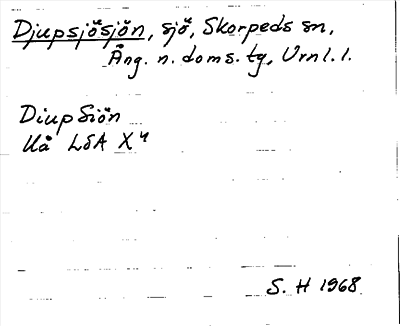 Djupsjösjön, sjö, Skorpeds sn,
Ång. n. doms. tg, Vrnl. l.
Diupsiön
Kå LSA X4
S. H 1968